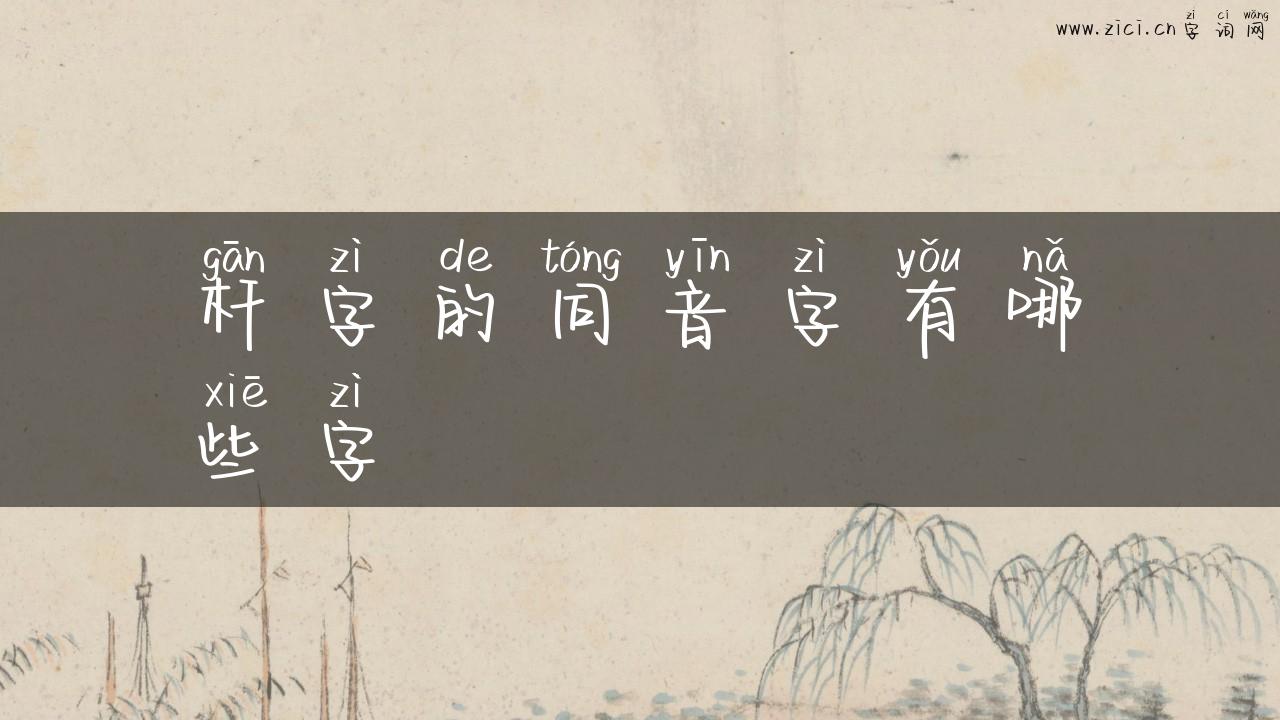 zì cí wǎng
www.zici.cn 字词网
gān zì de tóng yīn zì yǒu nǎ
杆字的同音字有哪
xiē zì
些字